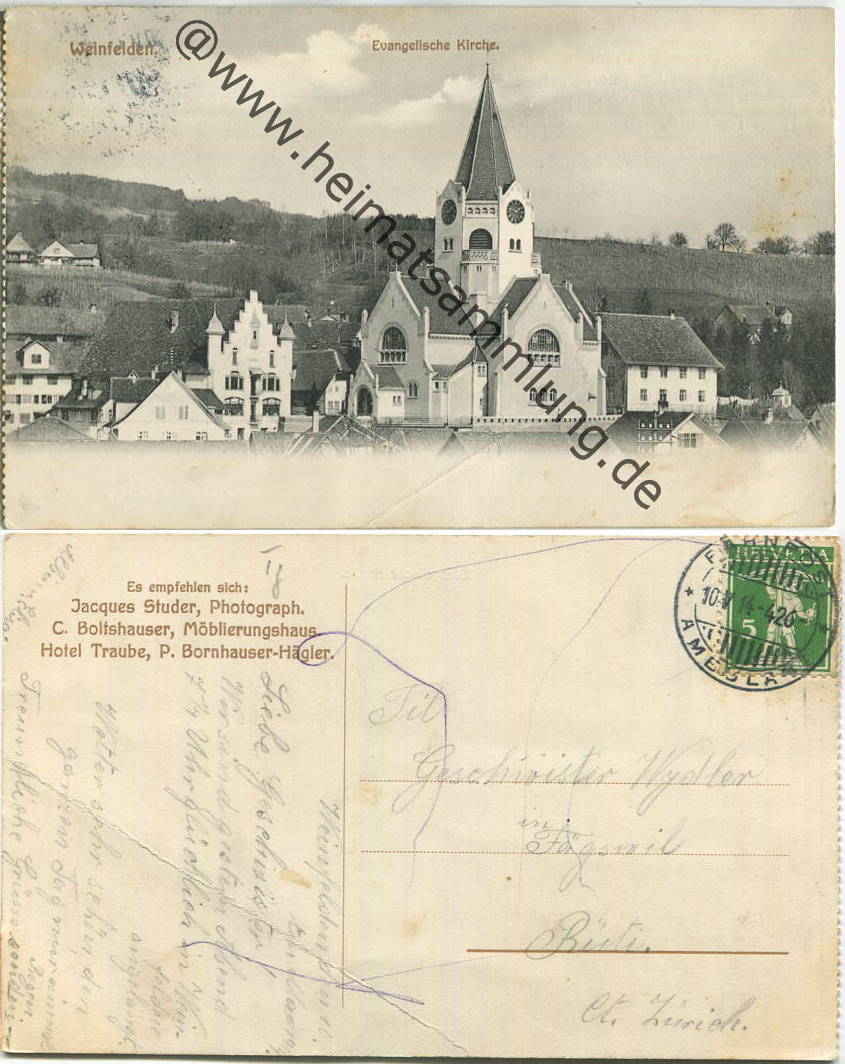 Weinfelden.
Evangelische Kirche.
@www.heimatsammlung.de
Es empfehlen sich:
Jacques Studer, Photograph.
C. Boltshauser, Möblierungshaus.
Hotel Traube, P. Bornhauser-Hägler.
HELVETIA
5
10.V.14-4
AMBULANT
Liebe Geschwister!
Wir sind gestern Abend
7¼ Uhr glücklich in Wein-
felden
angelangt
Wetter sehr schön den
ganzen Tag nur einmal
Regen
Freundliche Grüsse senden
Geschwister Wydler
in
Fägswil
Rüti.
Ct. Zürich.